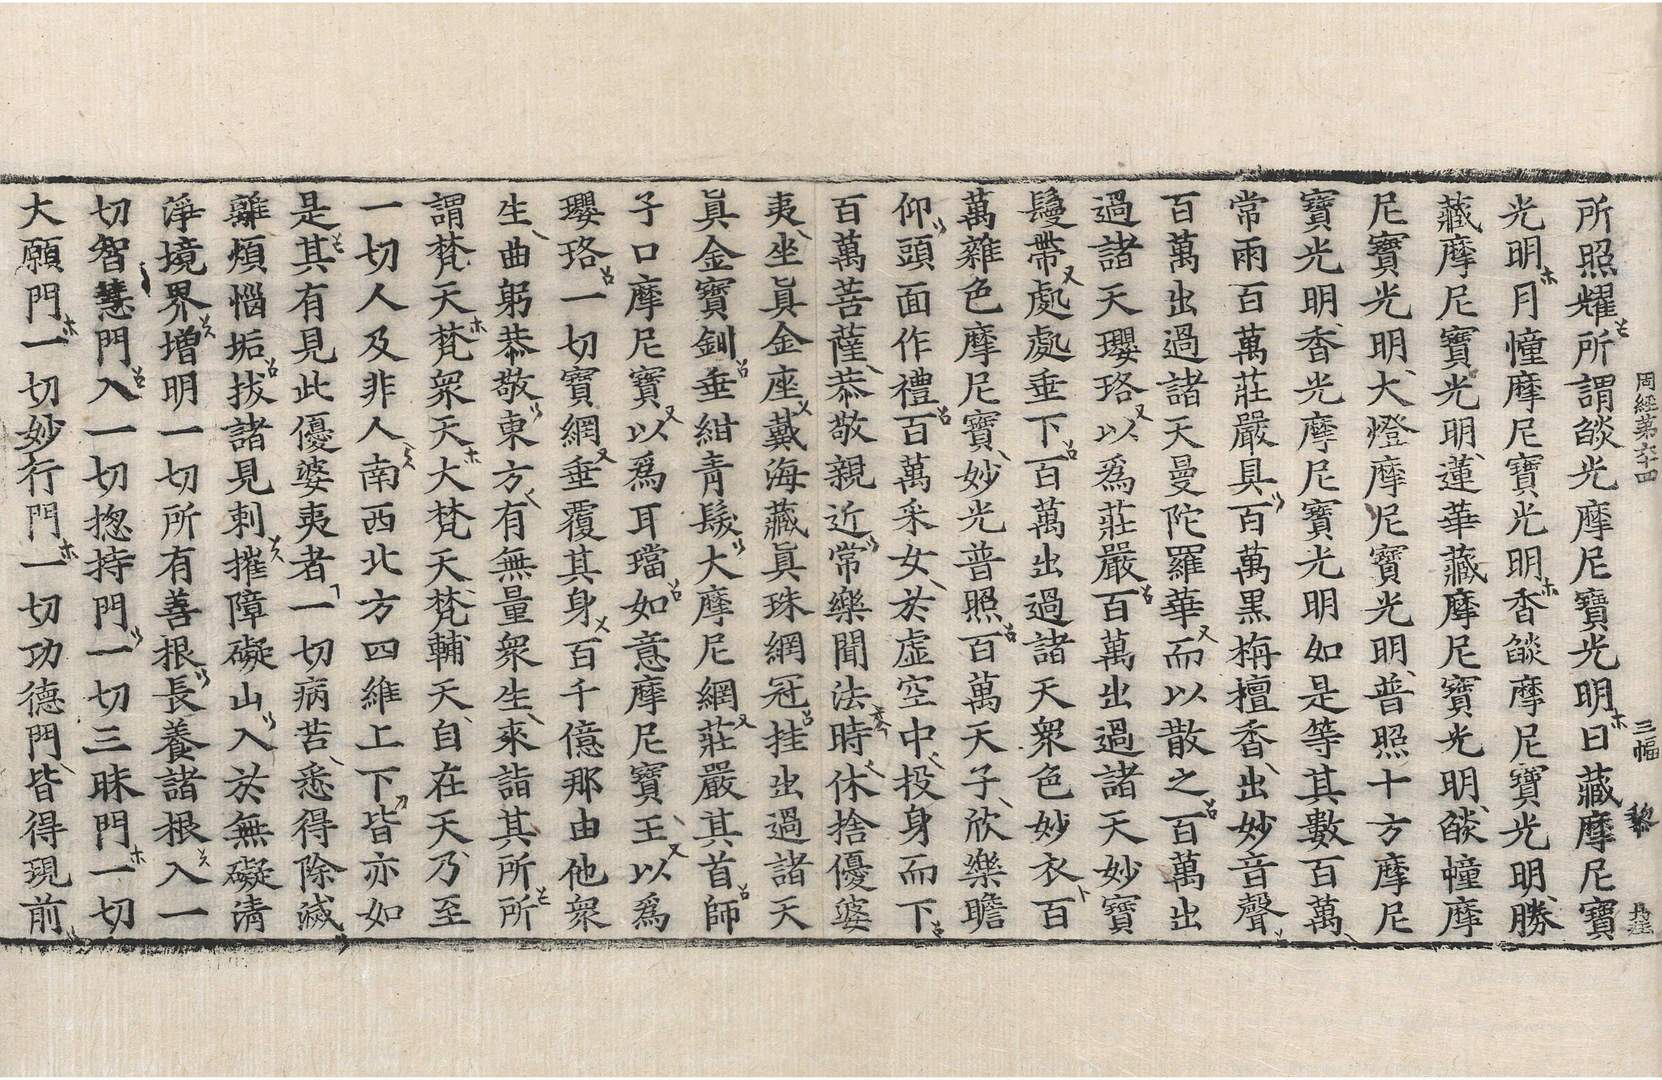 周經第六十四 三幅 黎
所照耀所謂燄光摩尼寶光明日藏摩尼寶
光明月幢摩尼寶光明香燄摩尼寶光明勝
藏摩尼寶光明蓮華藏摩尼寶光明燄幢摩
尼寶光明大燈摩尼寶光明普照十方摩尼
寶光明香光摩尼寶光明如是等其數百萬
常雨百萬莊嚴具百萬黑栴檀香出妙音聲
百萬出過諸天曼陀羅華而以散之百萬出
過諸天瓔珞以爲莊嚴百萬出過諸天妙寶
鬘帶處處垂下百萬出過諸天衆色妙衣百
萬雜色摩尼寶妙光普照百萬天子欣樂瞻
仰頭面作禮百萬采女於虛空中投身而下
百萬菩薩恭敬親近常樂聞法時休捨優婆
夷坐眞金座戴海藏眞珠網冠挂出過諸天
眞金寶釧垂紺青髮大摩尼網莊嚴其首師
子口摩尼寶以爲耳璫如意摩尼寶王以爲
瓔珞一切寶網垂覆其身百千億那由他衆
生曲躬恭敬東方有無量衆生來詣其所所
謂梵天梵衆天大梵天梵輔天自在天乃至
一切人及非人南西北方四維上下皆亦如
是其有見此優婆夷者一切病苦悉得除滅
離煩惱垢拔諸見刺摧障礙山入於無礙淸
淨境界增明一切所有善根長養諸根入一
切智慧門入一切揔持門一切三昧門一切
大願門一切妙行門一切功德門皆得現前